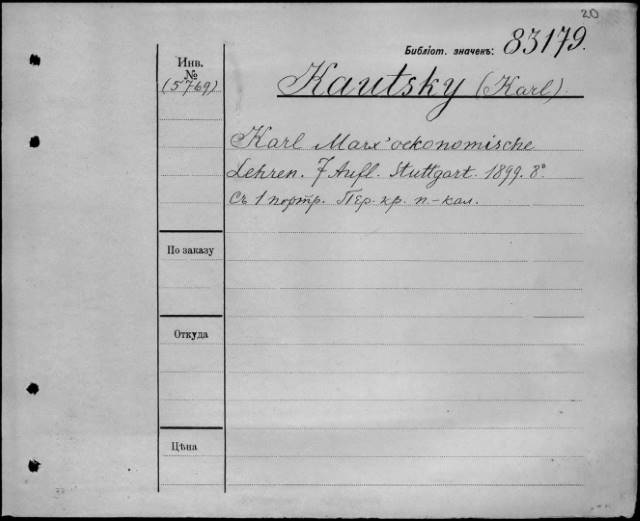 20
Библіот. значекъ: 83179.
Инв.
№
(5769)
Kautsky (Karl).
Karl Marx' oekonomische
Lehren. 7 Aufl. Stuttgart. 1899. 8°
Съ 1 портр. Пер. кр. п.-кал.
По заказу
Откуда
Цѣна